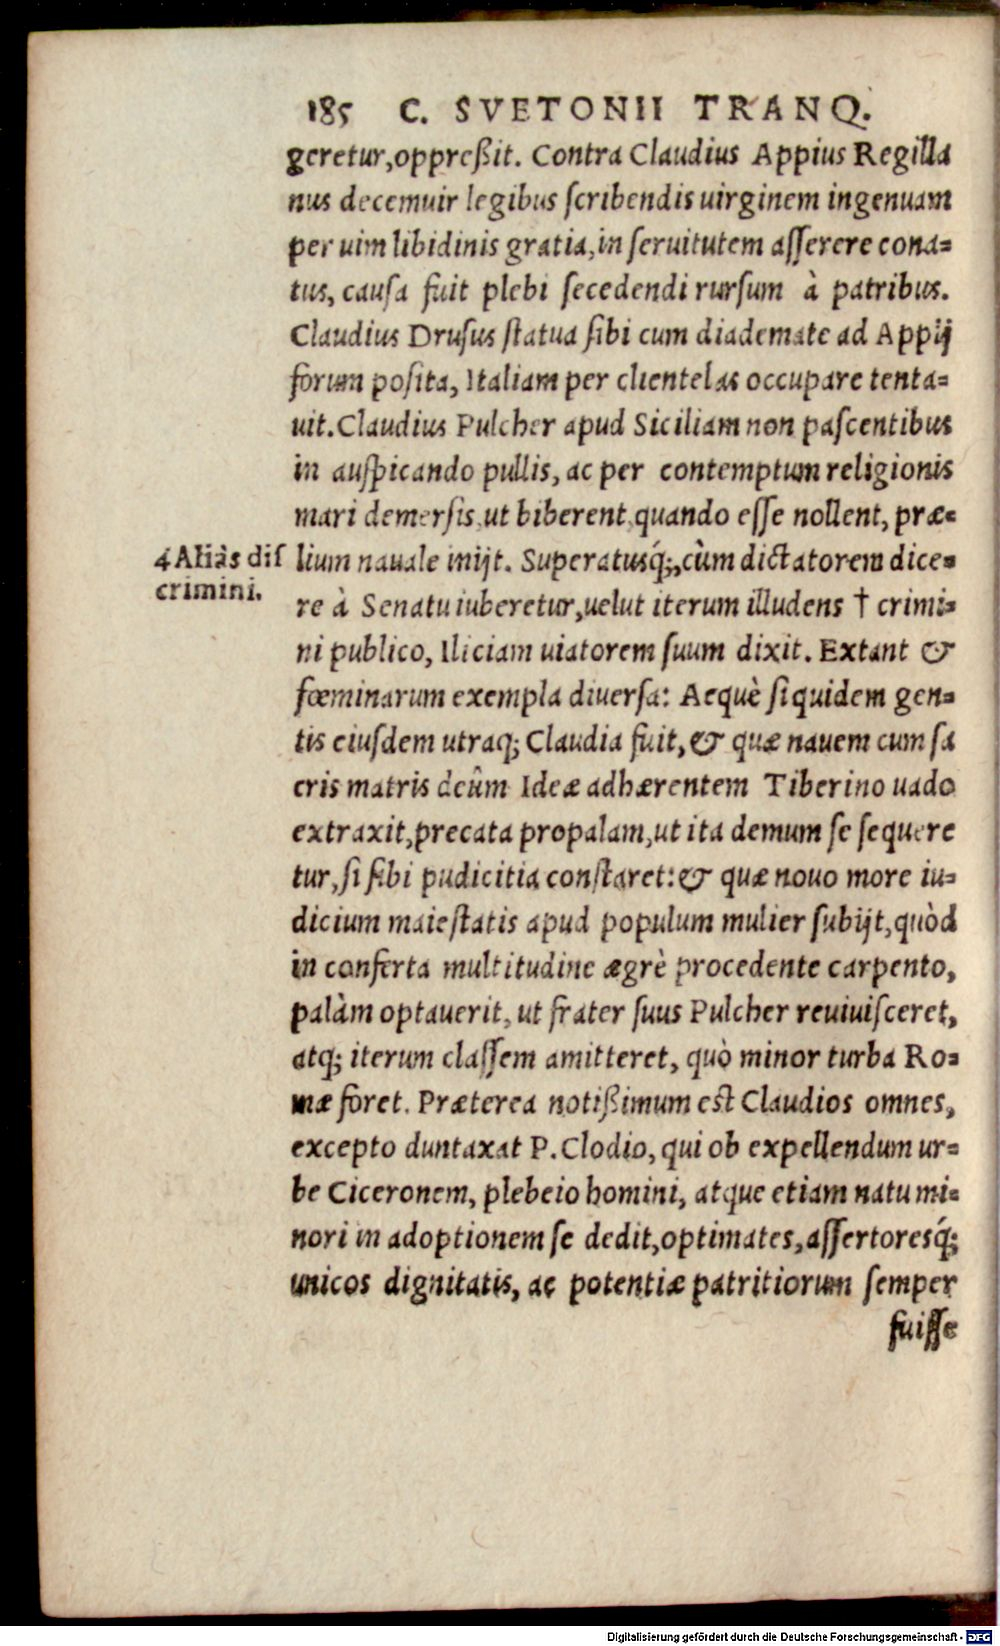 185 C. SVETONII TRANQ.
geretur, oppreßit. Contra Claudius Appius Regilla
nus decemuir legibus ſcribendis uirginem ingenuam
per uim libidinis gratia, in ſeruitutem aſſerere cona=
tus, cauſa fuit plebi ſecedendi rurſum à patribus.
Claudius Druſus ſtatua ſibi cum diademate ad Appij
forum poſita, Italiam per clientelas occupare tenta=
uit. Claudius Pulcher apud Siciliam non paſcentibus
in auſpicando pullis, ac per contemptum religionis
mari demerſis, ut biberent, quando eſſe nollent, præ=
4 Aliàs diſ
crimini.
lium nauale inijt. Superatusq́;, cùm dictatorem dice=
re à Senatu iuberetur, uelut iterum illudens † crimi=
ni publico, Iliciam uiatorem ſuum dixit. Extant &
fœminarum exempla diuerſa: Aequè ſiquidem gen=
tis eiuſdem utraq; Claudia fuit, & quæ nauem cum ſa
cris matris deûm Ideæ adhærentem Tiberino uado
extraxit, precata propalam, ut ita demum ſe ſequere
tur, ſi ſibi pudicitia conſtaret: & quæ nouo more iu=
dicium maieſtatis apud populum mulier ſubijt, quòd
in conferta multitudine ægrè procedente carpento,
palàm optauerit, ut frater ſuus Pulcher reuiuiſceret,
atq; iterum claſſem amitteret, quò minor turba Ro=
mæ foret. Præterea notißimum est Claudios omnes,
excepto duntaxat P. Clodio, qui ob expellendum ur=
be Ciceronem, plebeio homini, atque etiam natu mi=
nori in adoptionem ſe dedit, optimates, aſſertoresq́;
unicos dignitatis, ac potentiæ patritiorum ſemper
fuiſſe
Digitalisierung gefördert durch die Deutsche Forschungsgemeinschaft - DFG